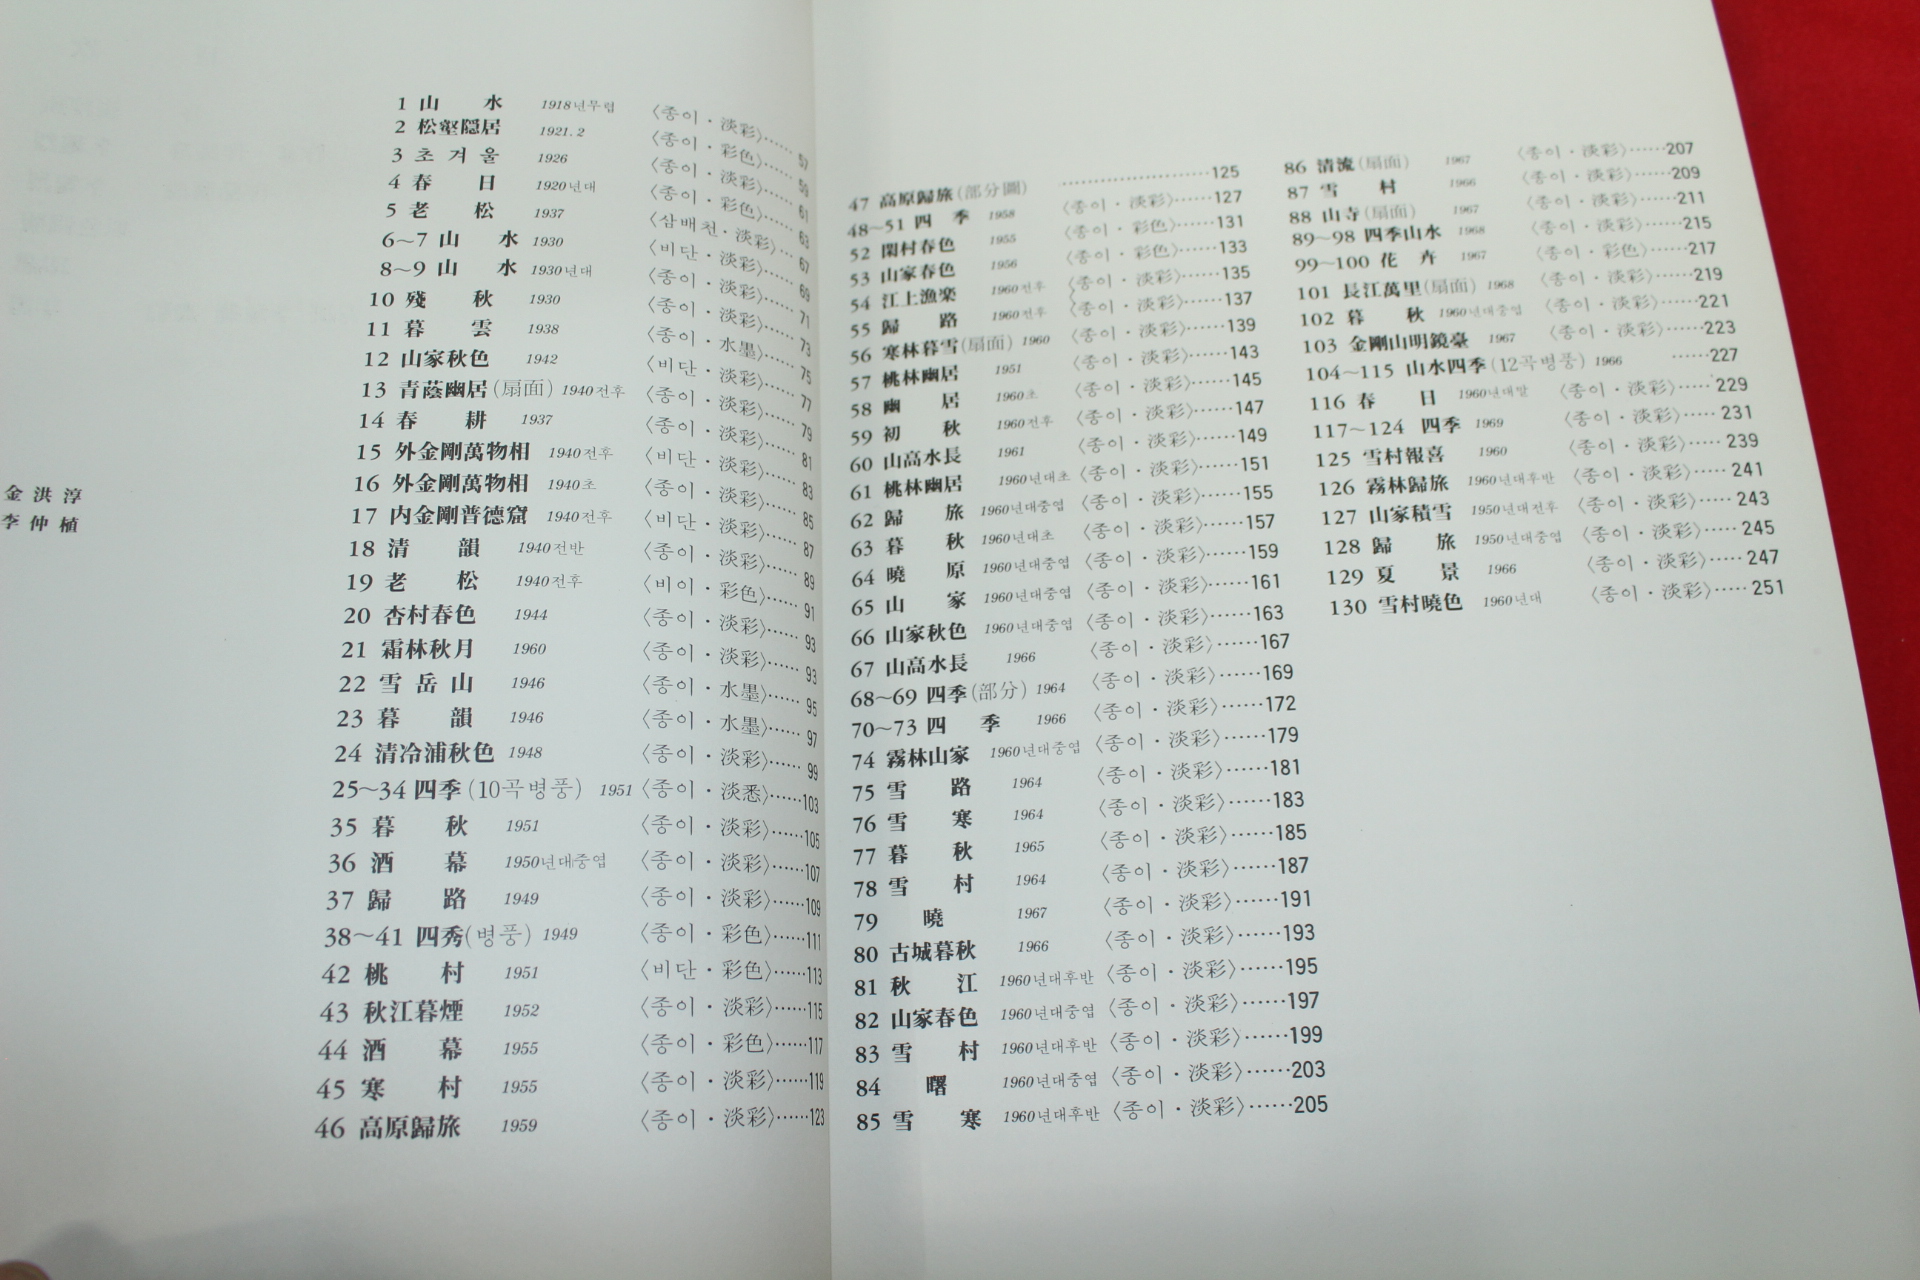 金洪淳
李仲植
1 山 水 1918년무렵 〈종이·淡彩〉……57
2 松壑隠居 1921. 2 〈종이·彩色〉……59
3 초 겨 울 1926 〈종이·淡彩〉……61
4 春 日 1920년대 〈종이·彩色〉……63
5 老 松 1937 〈삼배천·淡彩〉…67
6~7 山 水 1930 〈비단·淡彩〉……69
8~9 山 水 1930년대 〈종이·淡彩〉……71
10 殘 秋 1930 〈종이·淡彩〉……73
11 暮 雲 1938 〈종이·水墨〉……75
12 山家秋色 1942 〈비단·淡彩〉……77
13 青蔭幽居(扇面) 1940전후 〈종이·淡彩〉……79
14 春 耕 1937 〈종이·淡彩〉……81
15 外金剛萬物相 1940전후 〈비단·淡彩〉……83
16 外金剛萬物相 1940초 〈종이·淡彩〉……85
17 内金剛普德窟 1940전후 〈비단·淡彩〉……87
18 清 韻 1940전반 〈종이·淡彩〉……89
19 老 松 1940전후 〈비이·彩色〉……91
20 杏村春色 1944 〈종이·淡彩〉……93
21 霜林秋月 1960 〈종이·淡彩〉……93
22 雪 岳 山 1946 〈종이·水墨〉……95
23 暮 韻 1946 〈종이·水墨〉……97
24 清冷浦秋色 1948 〈종이·淡彩〉……99
25~34 四季(10곡병풍) 1951 〈종이·淡悉〉……103
35 暮 秋 1951 〈종이·淡彩〉……105
36 酒 幕 1950년대중엽 〈종이·淡彩〉……107
37 歸 路 1949 〈종이·淡彩〉……109
38~41 四秀(병풍) 1949 〈종이·彩色〉……111
42 桃 村 1951 〈비단·彩色〉……113
43 秋江暮煙 1952 〈종이·淡彩〉……115
44 酒 幕 1955 〈종이·彩色〉……117
45 寒 村 1955 〈종이·淡彩〉……119
46 高原歸旅 1959 〈종이·淡彩〉……123
47 高原歸旅(部分圖) ………………125
48~51 四 季 1958 〈종이·淡彩〉……127
52 閑村春色 1955 〈종이·彩色〉……131
53 山家春色 1956 〈종이·彩色〉……133
54 江上漁楽 1960전후 〈종이·淡彩〉……135
55 歸 路 1960전후 〈종이·淡彩〉……137
56 寒林暮雪(扇面) 1960 〈종이·淡彩〉……139
57 桃林幽居 1951 〈종이·淡彩〉……143
58 幽 居 1960초 〈종이·淡彩〉……145
59 初 秋 1960전후 〈종이·淡彩〉……147
60 山高水長 1961 〈종이·淡彩〉……149
61 桃林幽居 1960년대초 〈종이·淡彩〉……151
62 歸 旅 1960년대중엽 〈종이·淡彩〉……155
63 暮 秋 1960년대초 〈종이·淡彩〉……157
64 曉 原 1960년대중엽 〈종이·淡彩〉……159
65 山 家 1960년대중엽 〈종이·淡彩〉……161
66 山家秋色 1960년대중엽 〈종이·淡彩〉……163
67 山高水長 1966 〈종이·淡彩〉……167
68~69 四季(部分) 1964 〈종이·淡彩〉……169
70~73 四 季 1966 〈종이·淡彩〉……172
74 霧林山家 1960년대중엽 〈종이·淡彩〉……179
75 雪 路 1964 〈종이·淡彩〉……181
76 雪 寒 1964 〈종이·淡彩〉……183
77 暮 秋 1965 〈종이·淡彩〉……185
78 雪 村 1964 〈종이·淡彩〉……187
79 曉 1967 〈종이·淡彩〉……191
80 古城暮秋 1966 〈종이·淡彩〉……193
81 秋 江 1960년대후반 〈종이·淡彩〉……195
82 山家春色 1960년대중엽 〈종이·淡彩〉……197
83 雪 村 1960년대후반 〈종이·淡彩〉……199
84 曙 1960년대중엽 〈종이·淡彩〉……203
85 雪 寒 1960년대후반 〈종이·淡彩〉……205
86 清流(扇面) 1967 〈종이·淡彩〉……207
87 雪 村 1966 〈종이·淡彩〉……209
88 山寺(扇面) 1967 〈종이·淡彩〉……211
89~98 四季山水 1968 〈종이·淡彩〉……215
99~100 花 卉 1967 〈종이·彩色〉……217
101 長江萬里(扇面) 1968 〈종이·淡彩〉……219
102 暮 秋 1960년대중엽 〈종이·淡彩〉……221
103 金剛山明鏡臺 1967 〈종이·淡彩〉……223
104~115 山水四季(12곡병풍) 1966 ……227
116 春 日 1960년대말 〈종이·淡彩〉……229
117~124 四季 1969 〈종이·淡彩〉……231
125 雪村報喜 1960 〈종이·淡彩〉……239
126 霧林歸旅 1960년대후반 〈종이·淡彩〉……241
127 山家積雪 1950년대전후 〈종이·淡彩〉……243
128 歸 旅 1950년대중엽 〈종이·淡彩〉……245
129 夏 景 1966 〈종이·淡彩〉……247
130 雪村曉色 1960년대 〈종이·淡彩〉……251